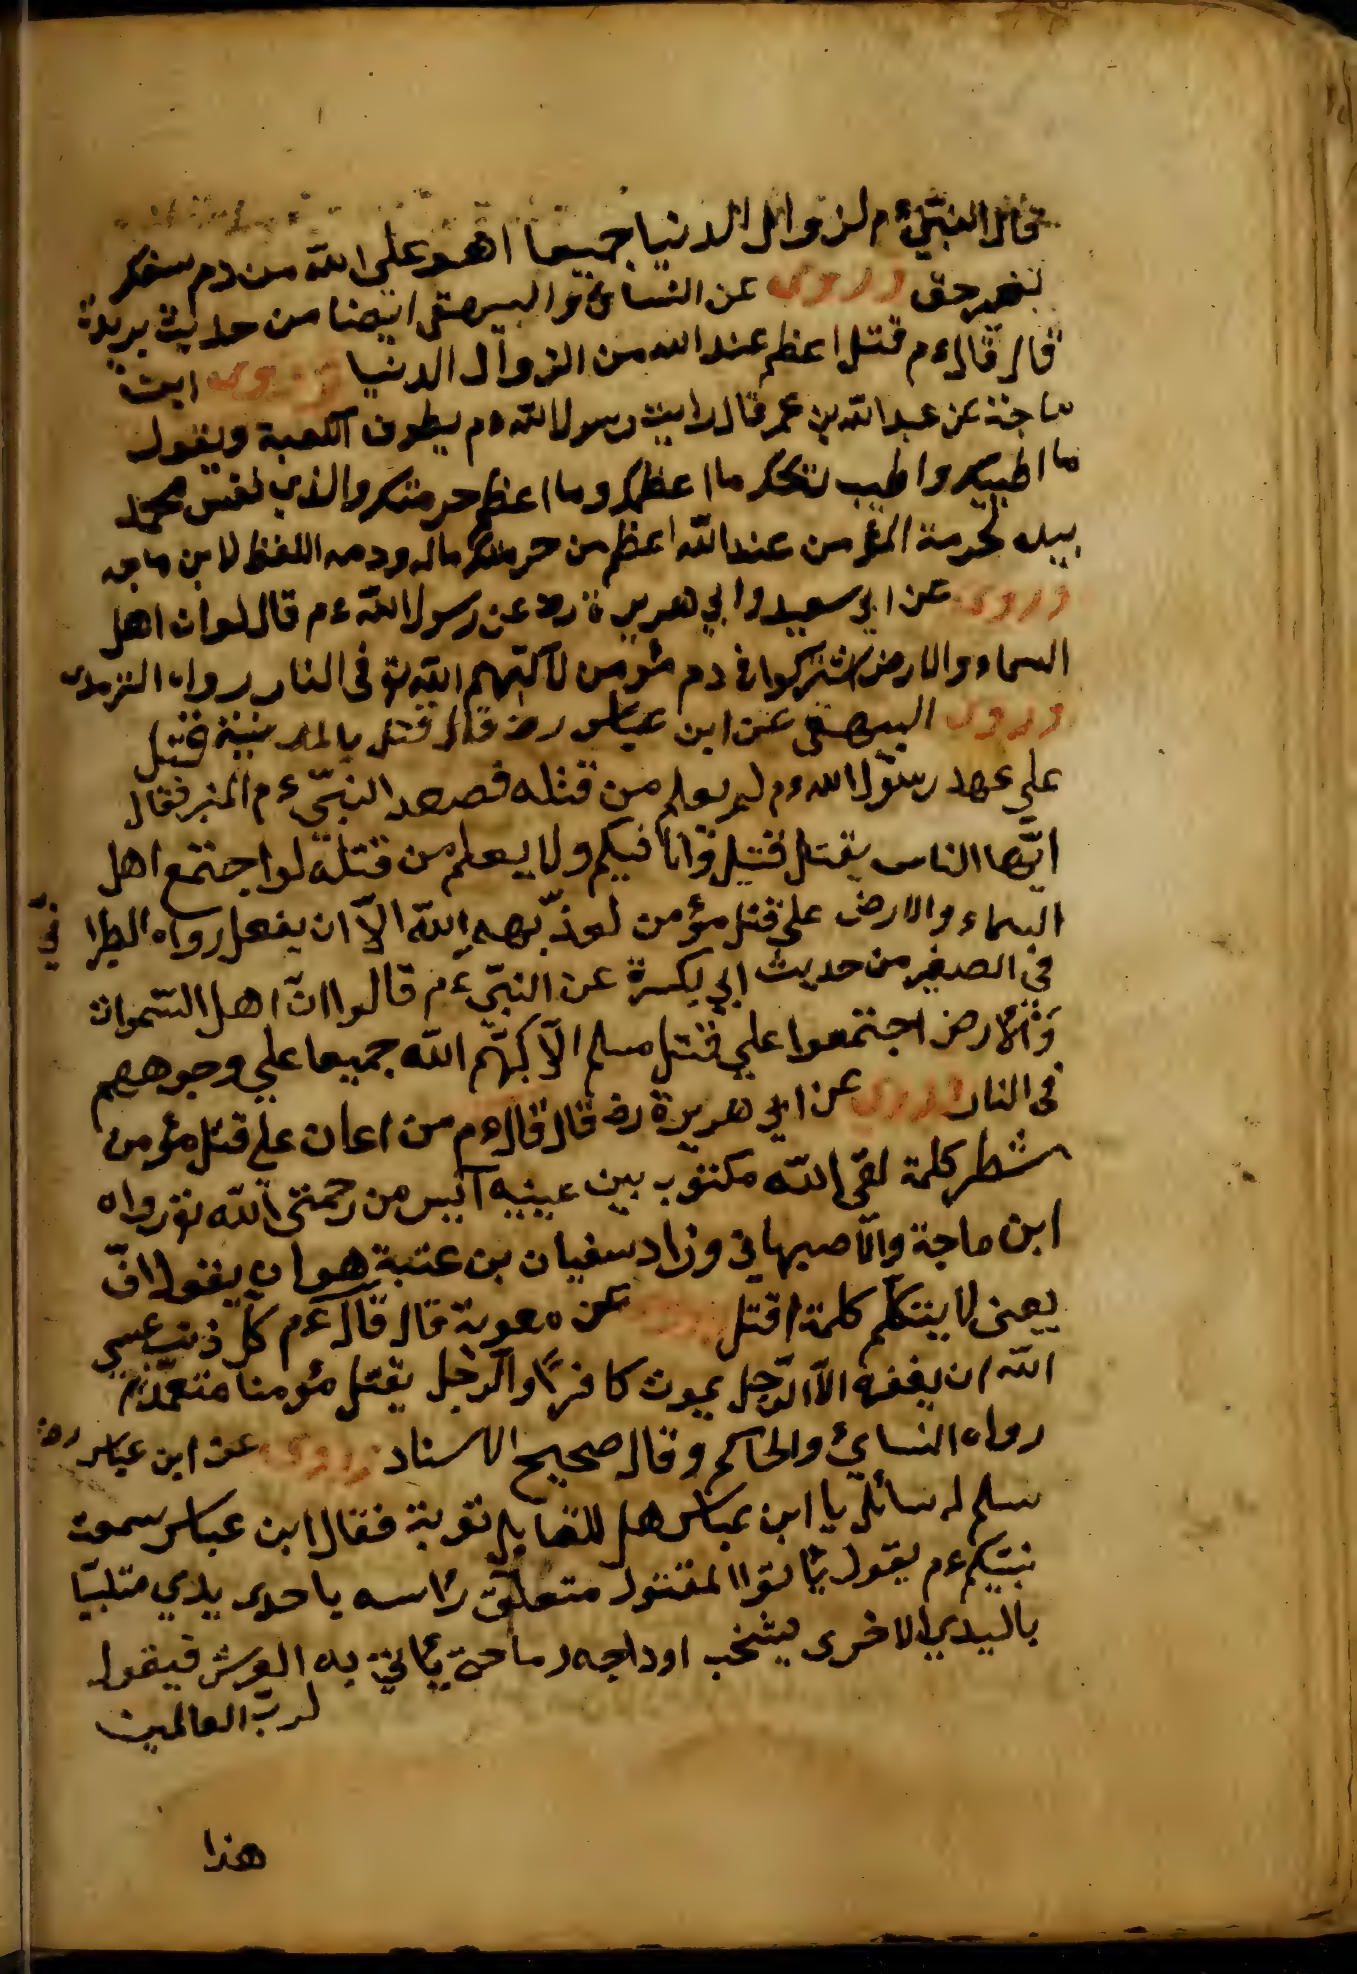 قال النبي ءم لزوال الدنيا جميعا اهو على الله من دم سفك
بغير حق وروى عن النسائ والبيهقى ايضا من حديث بريدة
قال قال ءم قتل اعظم عند الله من الزوال الدنيا وروى ابن
ماجة عن عبد الله بن عمر قال رايت رسول الله ءم يطوف الكعبة ويقول
ما اطيبك واطيب ريحك ما اعظمك وما اعظم حرمتك والذي نفس محمد
بيده لحرمة المؤمن عند الله اعظم من حرمتك ماله ودمه اللفظ لابن ماجه
وروى عن ابي سعيد وابي هريرة رض عن رسول الله ءم قال لو ان اهل
السماء والارض اشتركوا في دم مؤمن لاكبهم الله تع فى النار رواه الترمذى
وروى البيهقي عن ابن عباس رض قال قتل بالمدينة قتيل
على عهد رسول الله ءم لم يعلم من قتله فصعد النبي ءم المنبر فقال
ايها الناس يقتل قتيل وانا فيكم ولا يعلم من قتله لو اجتمع اهل
السماء والارض على قتل مؤمن لعذبهم الله الا ان يفعل رواه الطبرا ني
في الصغير من حديث ابي بكرة عن النبي ءم قالوا ان اهل السموات
والارض اجتمعوا علي قتل مسلم الا كبهم الله جميعا علي وجوههم
فى النار وروي عن ابي هريرة رض قال قال ءم من اعان على قتل مؤمن
شطر كلمة لقى الله مكتوب بين عينيه آئيس من رحمتى الله تع رواه
ابن ماجة والاصبهاني وزاد سفيان بن عتبة هو ان يقول اق
يعنى لا يتكلم كلمة اقتل وروى عن معوية قال قال ءم كل ذنب عسي
الله ان يغفره الا الرجل يموت كافرا والرجل يقتل مؤمنا متعمدا
رواه النسائ والحاكم وقال صحيح الاسناد وروى عن ابن عباس رض
سلم له سائل يا ابن عباس هل للقاتل توبة فقال ابن عباس سمعت
نبيكم ءم يقول يأتوا المقتول متعلق رأسه باحدى يدي متلبيا
باليدي الاخرى يشخب اوداجه دما حتى يأتي به العرش فيقول
لرب العالمين
هذا